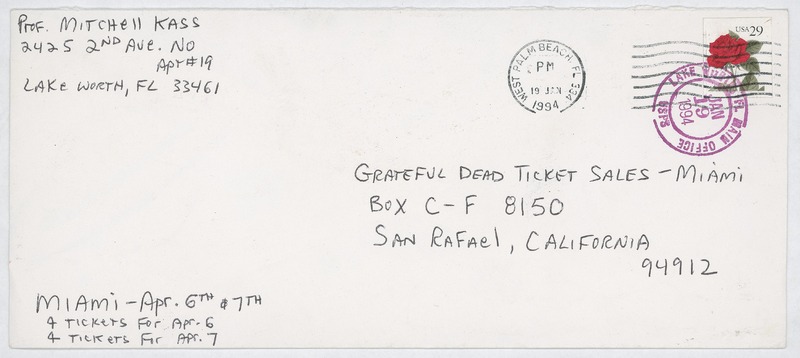 Prof. Mitchell Kass
2425 2nd Ave. No
Apt #19
Lake Worth, FL 33461
WEST PALM BEACH, FL 334
PM
19 JAN
1994
USA 29
LAKE FL MAIN OFFICE
JAN
19
1994
USPS
Grateful Dead Ticket Sales - Miami
Box C-F 8150
San Rafael, California
94912
Miami - Apr. 6th & 7th
4 Tickets For Apr. 6
4 Tickets For Apr. 7